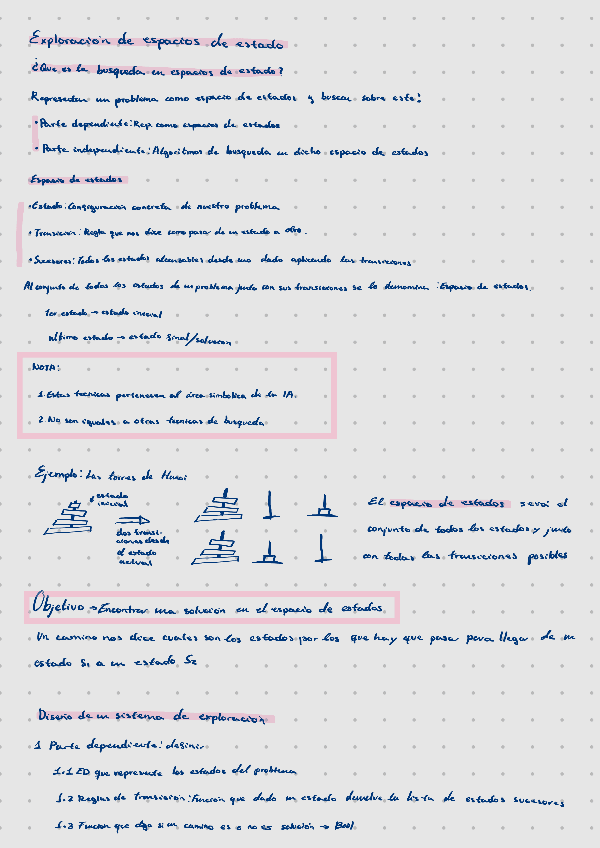 Exploracion de espacios de estado
¿Que es la busqueda en espacios de estado?
Representar un problema como espacio de estados y buscar sobre este:
• Parte dependiente: Rep. como espacios de estados
• Parte independiente: Algoritmos de busqueda en dicho espacio de estados
Espacio de estados
• Estado: Configuración concreta de nuestro problema
• Transición: Regla que nos dice como pasar de un estado a otro.
• Sucesores: Todos los estados alcanzables desde uno dado aplicando las transiciones
Al conjunto de todos los estados de un problema junto con sus transiciones se le denomina: Espacio de estados.
1er estado → estado inicial
ultimo estado → estado final/solucion
NOTA:
1. Estas tecnicas pertenecen al área simbolica de la IA.
2. No son iguales a otras tecnicas de busqueda
Ejemplo: Las torres de Hanoi
estado
inicial
dos transi-
ciones desde
el estado
actual
El espacio de estados será el
conjunto de todos los estados y junto
con todas las transiciones posibles
Objetivo → Encontrar una solución en el espacio de estados
Un camino nos dice cuales son los estados por los que hay que pasar para llegar de un
estado S1 a un estado S2
Diseño de un sistema de exploración
1 Parte dependiente: definir
1.1 ED que represente los estados del problema
1.2 Reglas de transición: Función que dado un estado devuelve la lista de estados sucesores
1.3 Funcion que diga si un camino es o no es solución → Bool